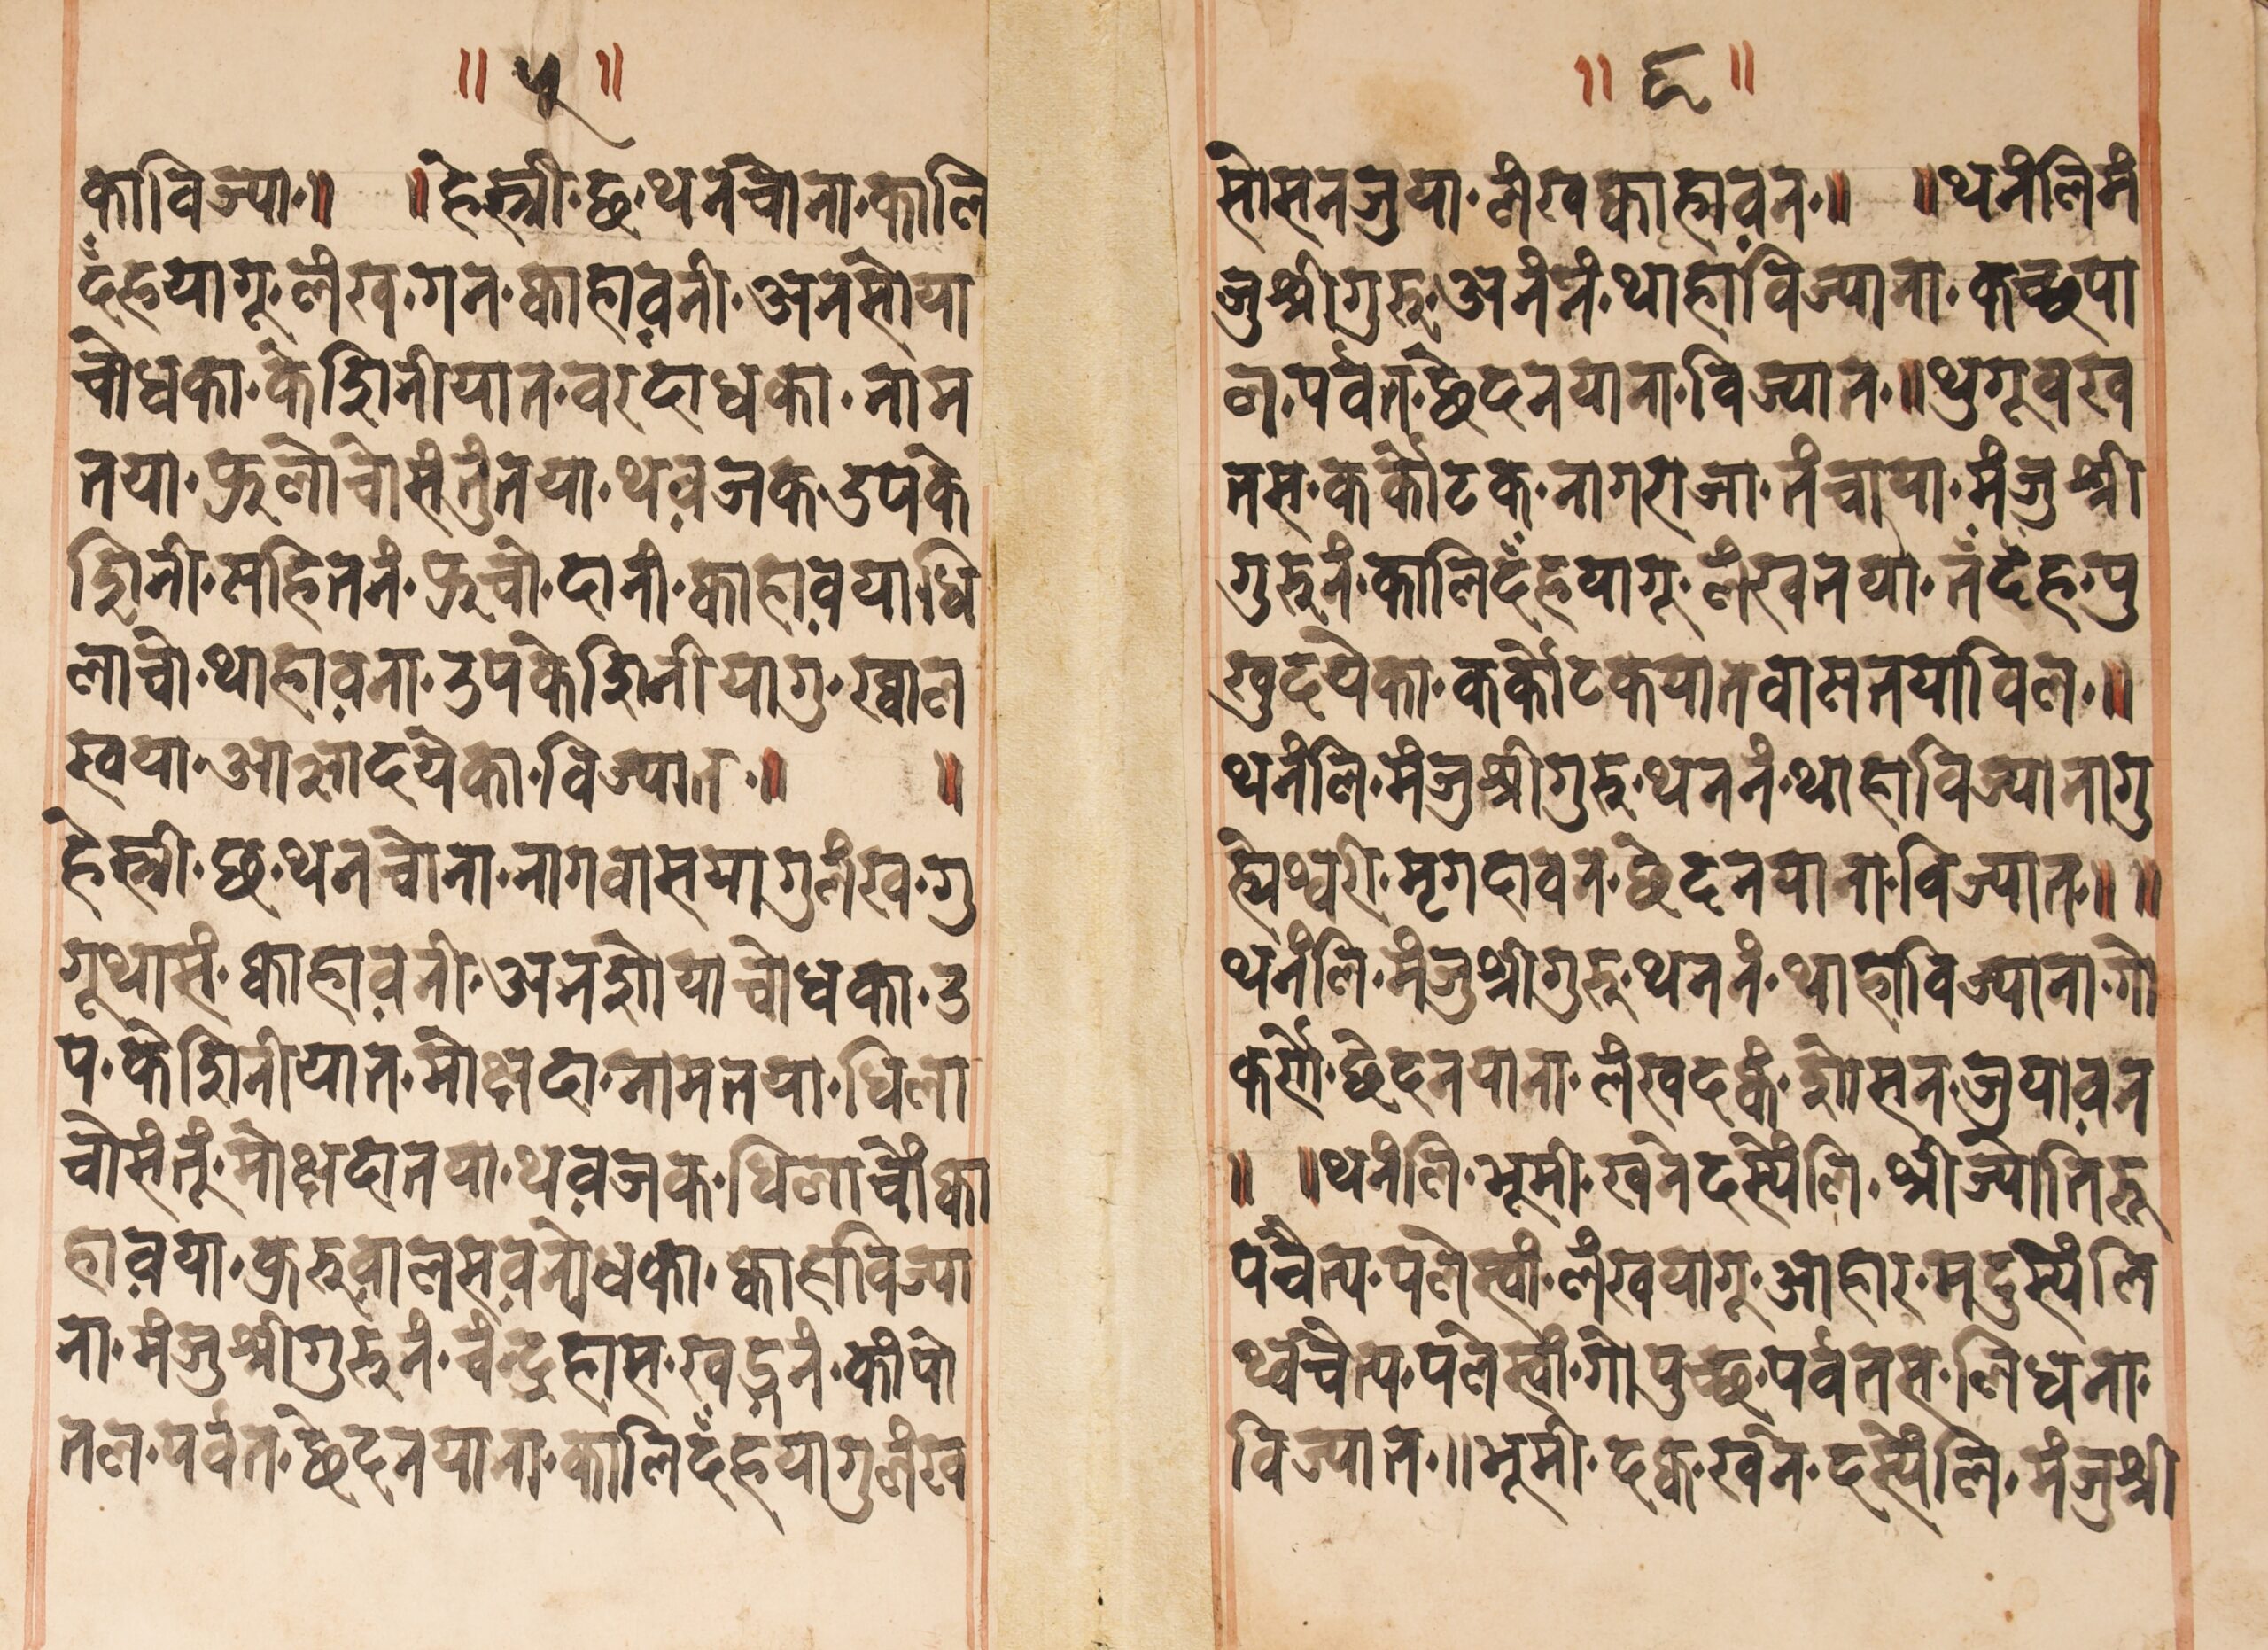 ॥ ५ ॥
काविज्या·॥ ॥हेस्त्री·छ·थनचोना·कालि
दँहयागू·लंख·गन·क्वाहाव़नी·अनसोया
चोधका·केशिनीयात·वरदाधका·नाम
तया·फ्रुलोचोसंतुंतया·थव़जक·उपके
शिनी·सहितनं·फ्रुचो·दानी·क्वाहाव़याधि
लाचो·थाहाव़ना·उपकेशिनीयागु·ख्वाल
स्वया·आज्ञादयेका·विज्यात·॥ ॥
हेस्त्री·छ·थनचोना·नागवासयागुलंख·गु
गूथासं·क्वाहाव़नी·अनशोयाचोधका·उ
प·केशिनीयात·मोक्षदा·नामतया·धिला
चोसंतूं·मोक्षदातया·थव़जक·धिलाचोंक्वा
हाव़या·क्रुरुवालसव़नेधका·क्वाहाविज्या
ना·मंजुश्रीगुरुनं·चंन्द्रहास·खड्गनं·कोपो
तल·पर्वत·छेदनयाना·कालिदँहयागुलंख
॥ ६ ॥
सोसनजुया·लंखक्वाह्राव़न·॥ ॥थनंलिमं
जुश्रीगुरु·अनंनं·थाहाँविज्याना·कच्छपा
ल·पर्वत·छेदनयाना·विज्यात·॥थुगूवख
तस·कर्कोटक·नागराजा·तंचाया·मंजुश्री
गुरुनं·कालिदँहयागू·लंखनया·तंदँह·पु
खुदयेका·कर्कोटकयातवासतयाविल·॥
थनंलि·मंजुश्रीगुरु·थननं·थाहाविज्यानागु
ह्येश्वरी·मृगदावन·छेदनयाना·विज्यात·॥ ॥
थनंलि·मंजुश्रीगुरु·थननं·थाहाविज्याना·गो
कर्सो·छेदनयाना·लंखदकं·शोसन·जुयाव़न
॥ ॥थनंलि·भूमी·खनेदस्येंलि·श्रीज्योतिरू
पचैत्य·पलेस्वां·लंखयागू·आहार·मदुस्येंलि
थ्वचैत्य·पलेस्वां·गोपुच्छ·पर्वतस·लिधना·
विज्यात·॥भूमी·दक्व·खंन·दस्येंलि·मंजुश्री